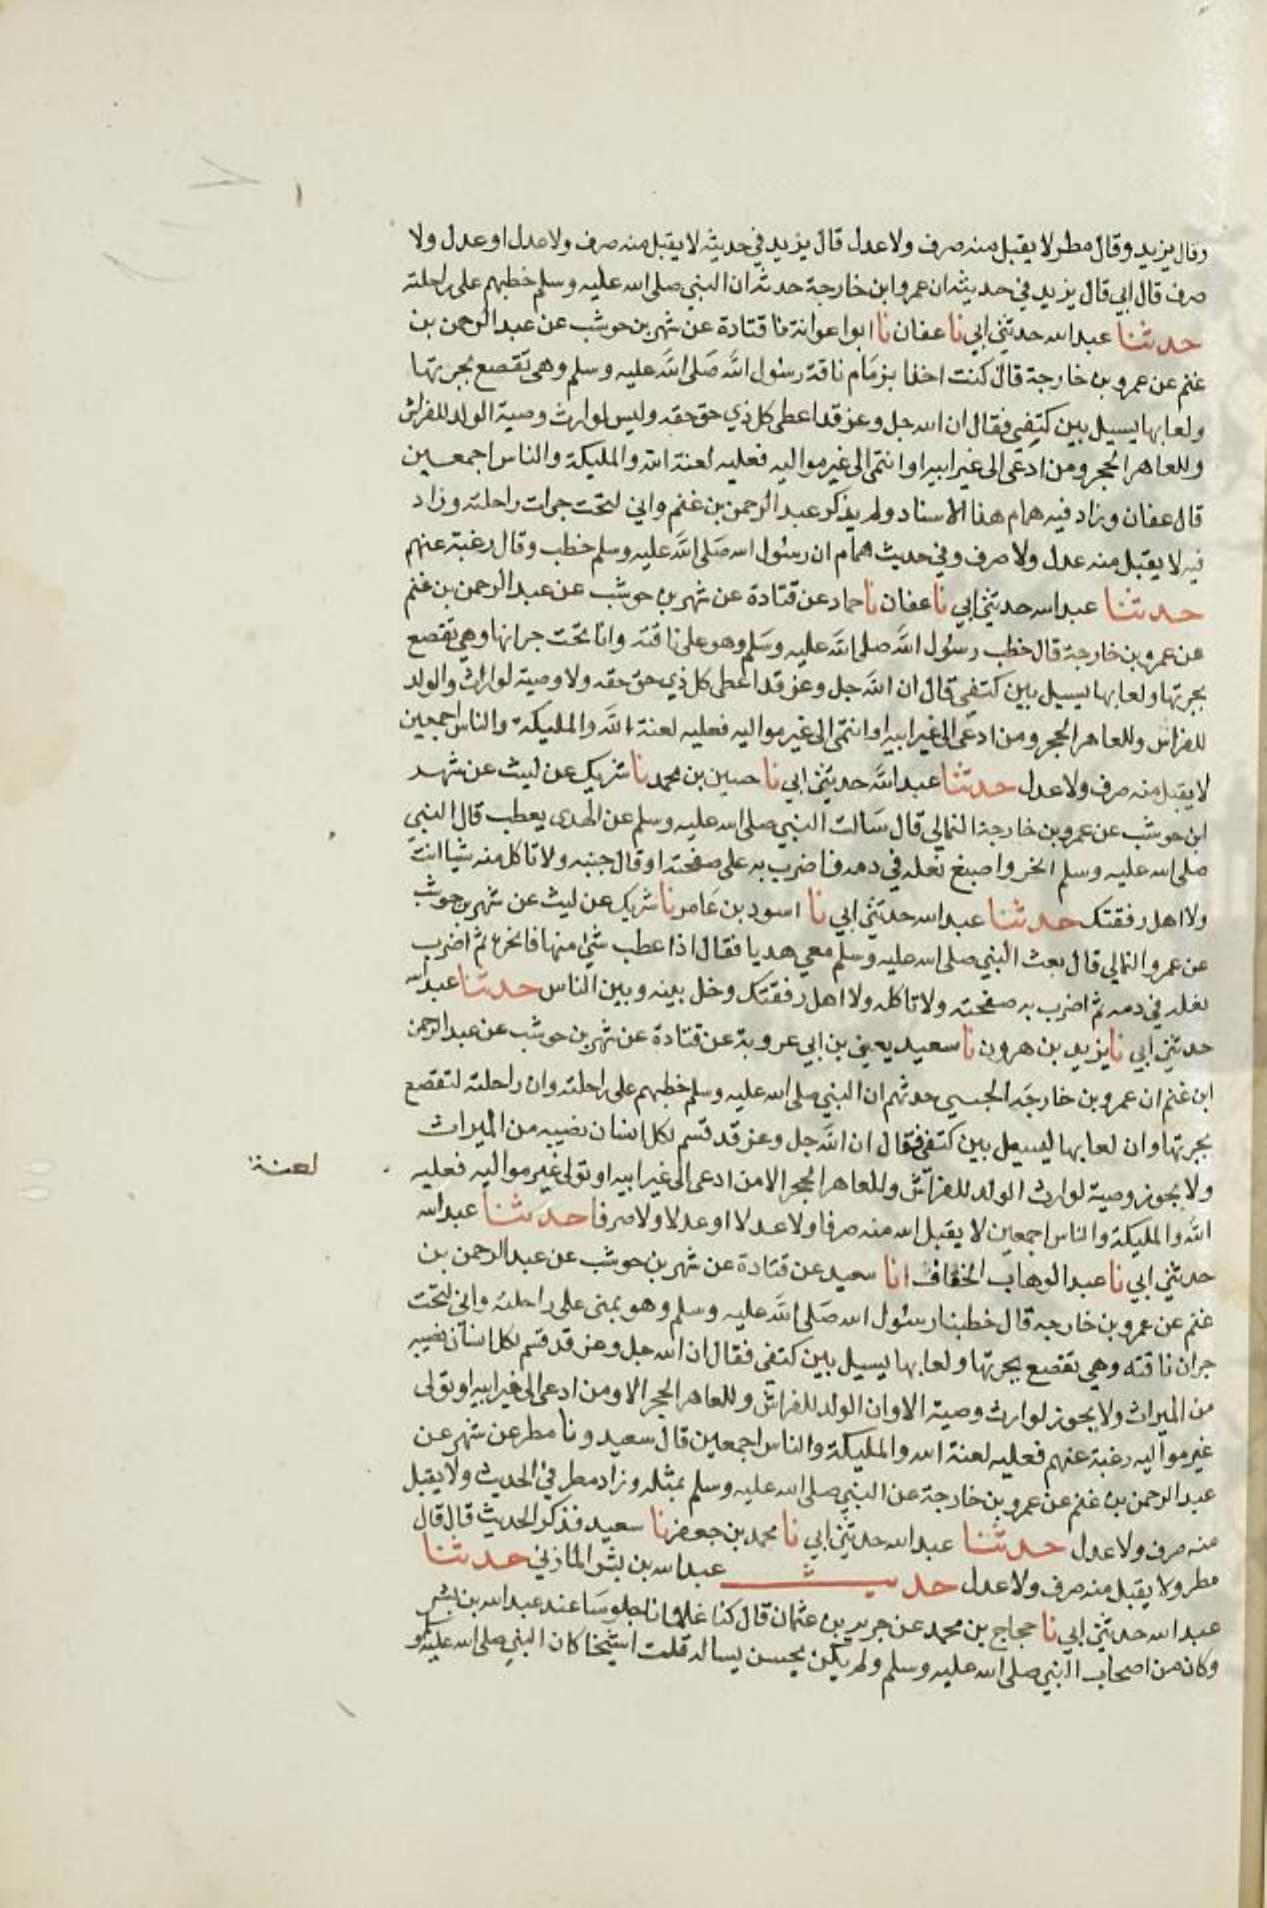 وقال يزيد وقال مطر لا يقبل منه صرف ولا عدل قال يزيد في حديثه لا يقبل منه صرف ولا عدل او عدل ولا
صرف قال ابي قال يزيد في حديثه ان عمرو ابن خارجة حدثه ان النبي صلى الله عليه وسلم خطبهم على راحلته
حدثنا عبد الله حدثني ابي نا عفان نا ابوا عوانة نا قتادة عن شهر بن حوشب عن عبد الرحمن بن
غنم عن عمرو بن خارجة قال كنت اخذا بزمام ناقة رسول الله صلى الله عليه وسلم وهي تقصع بجرتها
ولعابها يسيل بين كتفي فقال ان الله جل وعز قد اعطى كل ذي حق حقه وليس لوارث وصية الولد للفراش
وللعاهر الحجر ومن ادعى الى غير ابيه او انتمى الى غير مواليه فعليه لعنة الله والمليكة والناس اجمعين
قال عفان وزاد فيه همام هذا الاسناد ولم يذكر عبد الرحمن بن غنم واني لتحت جران راحلته وزاد
فيه لا يقبل منه عدل ولا صرف وفي حديث همام ان رسول الله صلى الله عليه وسلم خطب وقال رغبة عنهم
حدثنا عبد الله حدثني ابي نا عفان نا حماد عن قتادة عن شهر بن حوشب عن عبد الرحمن بن غنم
عن عمرو بن خارجة قال خطب رسول الله صلى الله عليه وسلم وهو على ناقته وانا تحت جرانها وهي تقصع
بجرتها ولعابها يسيل بين كتفي قال ان الله جل وعز قد اعطى كل ذي حق حقه ولا وصية لوارث والولد
للفراش وللعاهر الحجر ومن ادعى الى غير ابيه او انتمى الى غير مواليه فعليه لعنة الله والمليكة والناس اجمعين
لا يقبل منه صرف ولا عدل حدثنا عبد الله حدثني ابي نا حسين بن محمد نا شريك عن ليث عن شهر
ابن حوشب عن عمرو بن خارجة الثمالي قال سالت النبي صلى الله عليه وسلم عن الهدى يعطب قال النبي
صلى الله عليه وسلم انحر واصبغ نعله في دمه فاضرب به على صفحته او قال جنبه ولا تاكل منه شيا انت
ولا اهل رفقتك حدثنا عبد الله حدثني ابي نا اسود بن عامر نا شريك عن ليث عن شهر بن حوشب
عن عمرو الثمالي قال بعث النبي صلى الله عليه وسلم معي هديا فقال اذا عطب شئ منها فانحره ثم اضرب
نعله في دمه ثم اضرب به صفحته ولا تاكله ولا اهل رفقتك وخل بينه وبين الناس حدثنا عبد الله
حدثني ابي نا يزيد بن هرون نا سعيد يعني بن ابي عروبة عن قتادة عن شهر بن حوشب عن عبد الرحمن
ابن غنم ان عمرو بن خارجه حدثهم ان النبي صلى الله عليه وسلم خطبهم على راحلته وان راحلته لتقصع
بجرتها وان لعابها ليسيل بين كتفي فقال ان الله جل وعز قد قسم لكل انسان نصيبه من الميراث
ولا يجوز وصية لوارث الولد للفراش وللعاهر الحجر الا من ادعى الى غير ابيه او تولى غير مواليه فعليه
لعنة
الله والمليكة والناس اجمعين لا يقبل الله منه صرفا ولا عدلا او عدلا ولا صرفا حدثنا عبد الله
حدثني ابي نا عبد الوهاب الخفاف انا سعيد عن قتادة عن شهر بن حوشب عن عبد الرحمن بن
غنم عن عمرو بن خارجه قال خطبنا رسول الله صلى الله عليه وسلم وهو بمنى على راحلته واني لتحت
جران ناقته وهي تقصع بجرتها ولعابها يسيل بين كتفي فقال ان الله جل وعز قد قسم لكل انسان نصيبه
من الميراث ولا يجوز لوارث وصية الا وان الولد للفراش وللعاهر الحجر الا ومن ادعى الى غير ابيه او تولى
غير مواليه رغبة عنهم فعليه لعنة الله والمليكة والناس اجمعين قال سعيد ونا مطر عن شهر عن
عبد الرحمن بن غنم عن عمرو بن خارجة عن النبي صلى الله عليه وسلم بمثله وزاد مطر في الحديث ولا يقبل
منه صرف ولا عدل حدثنا عبد الله حدثني ابي نا محمد بن جعفر نا سعيد فذكر الحديث قال قال
مطر ولا يقبل منه صرف ولا عدل حديث عبد الله بن بشر المازني حدثنا
عبد الله حدثني ابي نا حجاج بن محمد عن جرير بن عثمان قال كنا غلمانا جلوسا عند عبد الله بن بشر
وكان من اصحاب النبي صلى الله عليه وسلم ولم يكن يحسن يساله قلت اشيخا كان النبي صلى الله عليه